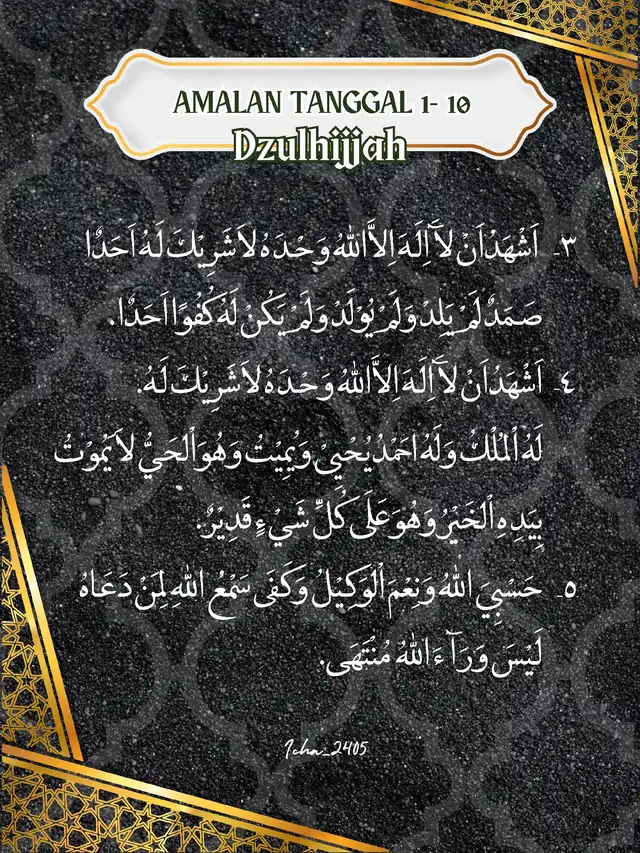 AMALAN TANGGAL 1- 10
Dzulhijjah
٣- اَشْهَدُاَنْ لَآاِلَهَ اِلاَّاللهُ وَحْدَهُ لاَشَرِيْكَ لَهُ اَحَدًا
صَمَدًا لَمْ يَلِدْ وَلَمْ يُوْلَدْ وَلَمْ يَكُنْ لَهُ كُفُوًا اَحَدًا.
٤- اَشْهَدُاَنْ لَآاِلَهَ اِلاَّاللهُ وَحْدَهُ لاَشَرِيْكَ لَهُ.
لَهُ الْمُلْكُ وَلَهُ احَمْدُيُحْيِيْ وَيُمِيْتُ وَهُوَالْحَيُّ لاَيَمُوْتُ
بِيَدِهِ الْخَيْرُ وَهُوَعَلَى كُلِّ شَيْءٍ قَدِيْرٌ.
٥- حَسْبِيَ اللهُ وَنِعْمَ الْوَكِيْلُ وَكَفَى سَمْعُ اللهِ لِمَنْ دَعَاهُ
لَيْسَ وَرَآءَاللهُ مُنْتَهَى.
Icha_2405